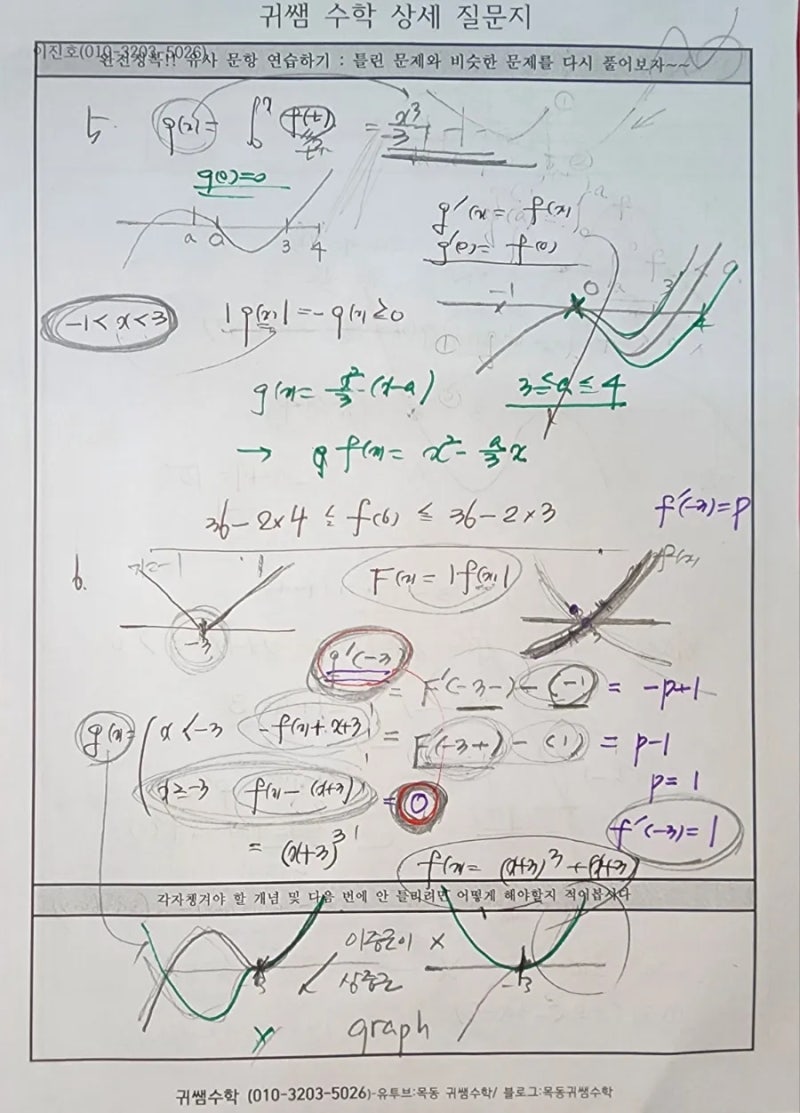 귀쌤 수학 상세 질문지
이진호(010-3203-5026)
완전정복!! 유사 문항 연습하기 : 틀린 문제와 비슷한 문제를 다시 풀어보자~~
5.
g(x) = ∫₀ˣ f(t) = x³/3
g(0)=0
a 0 3 4
g'(x) = f(x)
g'(0) = f(0)
-1 < x < 3
|g(x)| = -g(x) ≥ 0
-1 0 3 4
①
g(x) = x²/3 (x-a)
3 ≤ a ≤ 4
→ f(x) = x² - a/3 x
36-2×4 ≤ f(6) ≤ 36-2×3
f'(-3)=p
6.
-1 1
-3
F(x) = |f(x)|
f(x)
g'(-3)
= F'(-3-) - (-1) = -p+1
g(x) =
x < -3 -f(x)+x+3
= F'(-3+) - (1) = p-1
x ≥ -3 f(x)-(x+3)
= 0
p = 1
f'(-3)=1
= (x+3)³
f(x) = (x+3)³+(x+3)
각자챙겨야 할 개념 및 다음 번에 안 틀리려면 어떻게 해야할지 적어봅시다
이중근이 X
삼중근
-3
X
graph
귀쌤수학 (010-3203-5026)-유투브:목동 귀쌤수학/ 블로그:목동귀쌤수학